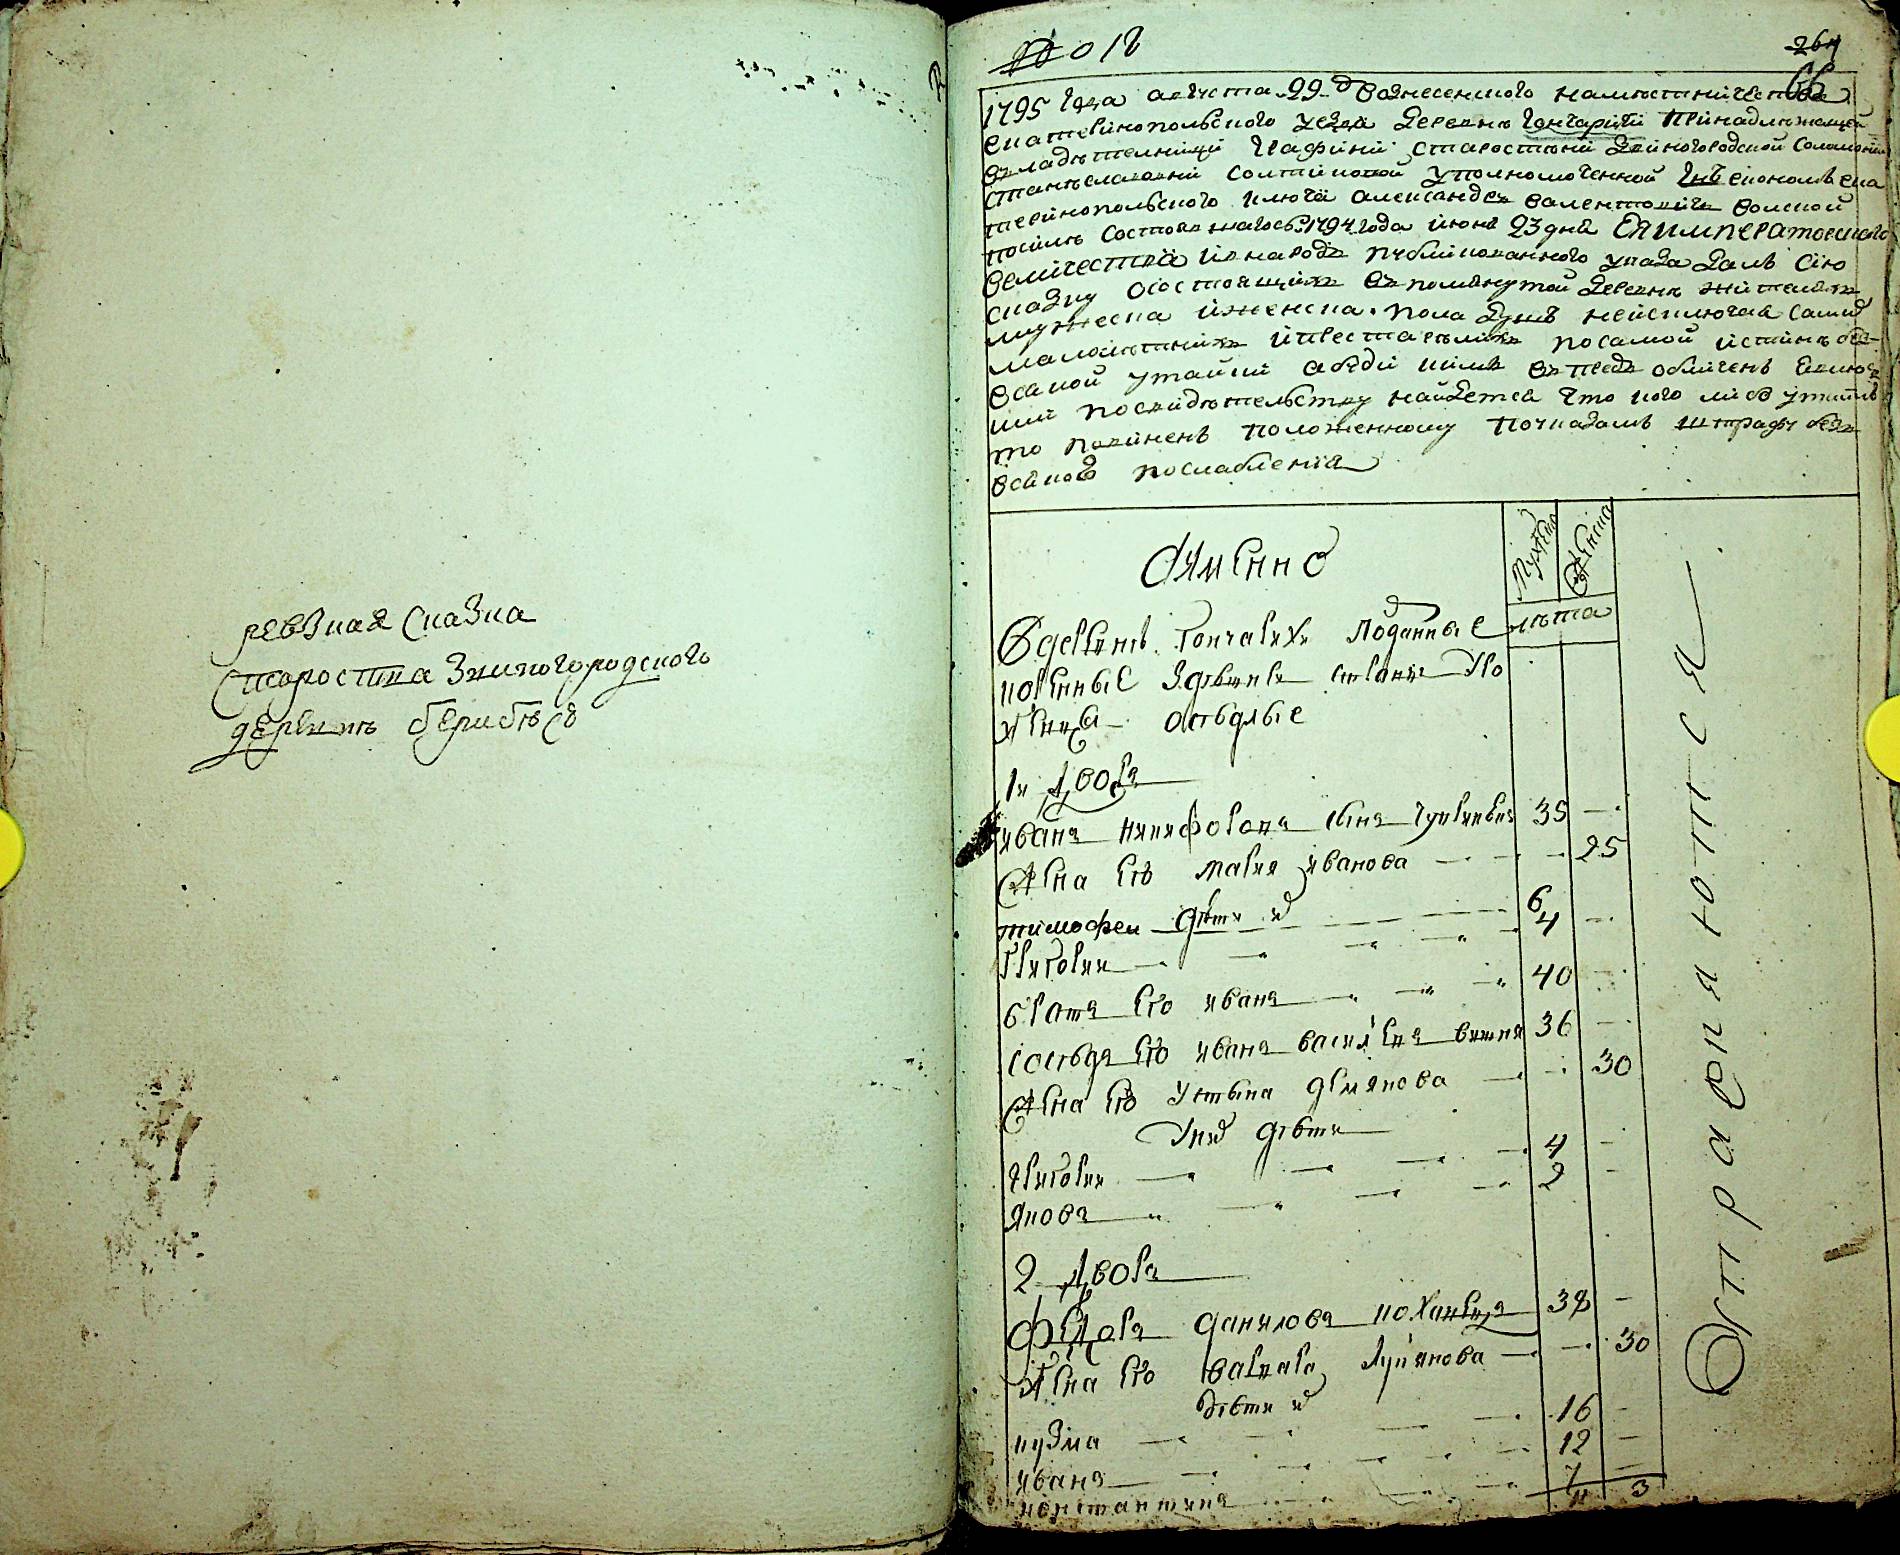 ревзкая сказка
староства Звиногородского
деревнѣ
018
264
66
1795 года августа 29 д вознесенского наместничества
екатеринопольского уезда деревнѣ гончарихи принадлежащей
владѣтелницы графини старостины звиногородской соломонии
станѣславовни солтиковой уполномоченной
теринопольского ключа александръ валентовичъ волской
посилѣ состоявшагося 1794 года июня 23 дня ЕЯ императорского
величества и внародъ публикованного указа далъ сию
сказку о состоящихъ въ помянутой деревнѣ жителяхъ
мужеска и женска пола душъ неисключая самыхъ
малолѣтнихъ и престарелихъ по самой истиннѣ безъ
всякой утайки а ежели кимъ въ предъ обличенъ
или по свидѣтельству найдется что кого либо утаилъ
то повиненъ положенному по указамъ штрафу безъ
всякого послабления
Аименно
мужеска
женска
лѣта
В деревнѣ гончарихи подданные
коренные
оседлые
1й дворъ
иванъ никифоровъ сынъ 35
жена его мария иванова 25
тимофеи дѣти и 6
григории 4
братъ его иванъ 40
соседъ его иванъ васильевъ вишня 36
жена его устина демянова 30
у них дѣти
григории 4
яковъ 2
2 дворъ
федоръ даниловъ коханецъ 38
жена его варвара лукянова 30
дѣти и
кузма 16
иванъ 12
константинъ 7
11 3
Отправляются